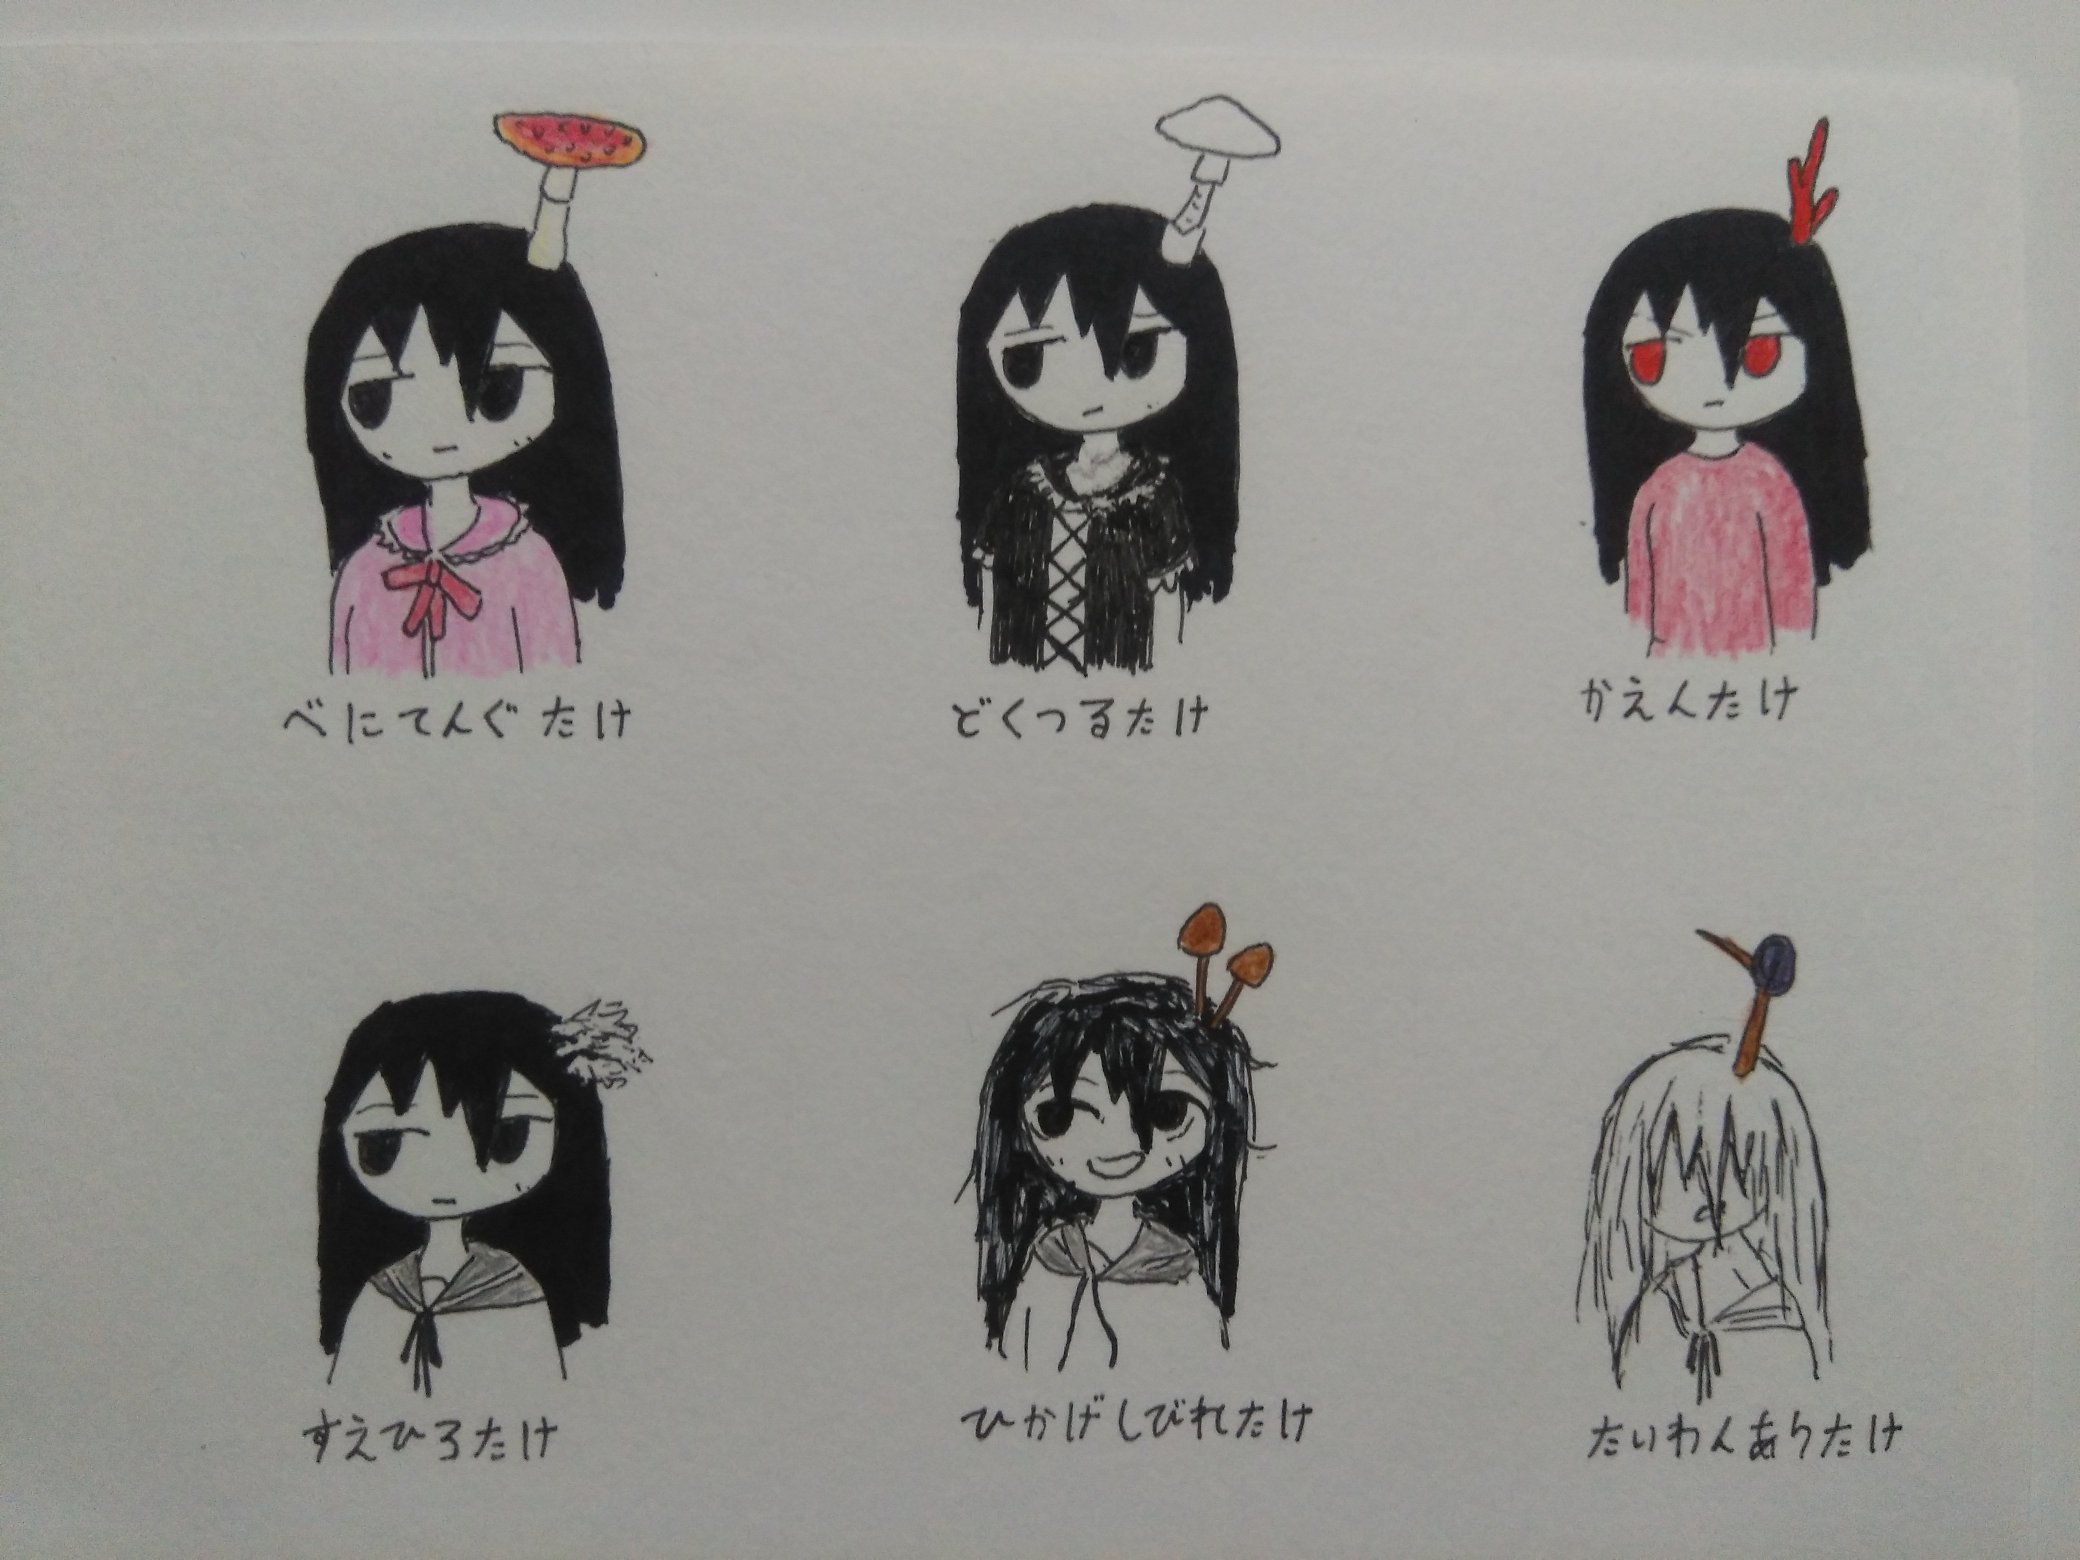 べにてんぐたけ
どくつるたけ
かえんたけ
すえひろたけ
ひかげしびれたけ
たいわんありたけ